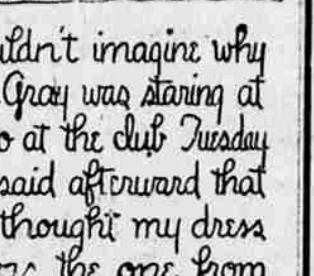 uldn't imagine why
Gray was staring at
o at the club Tuesday
said afterward that
thought my dress
the one from